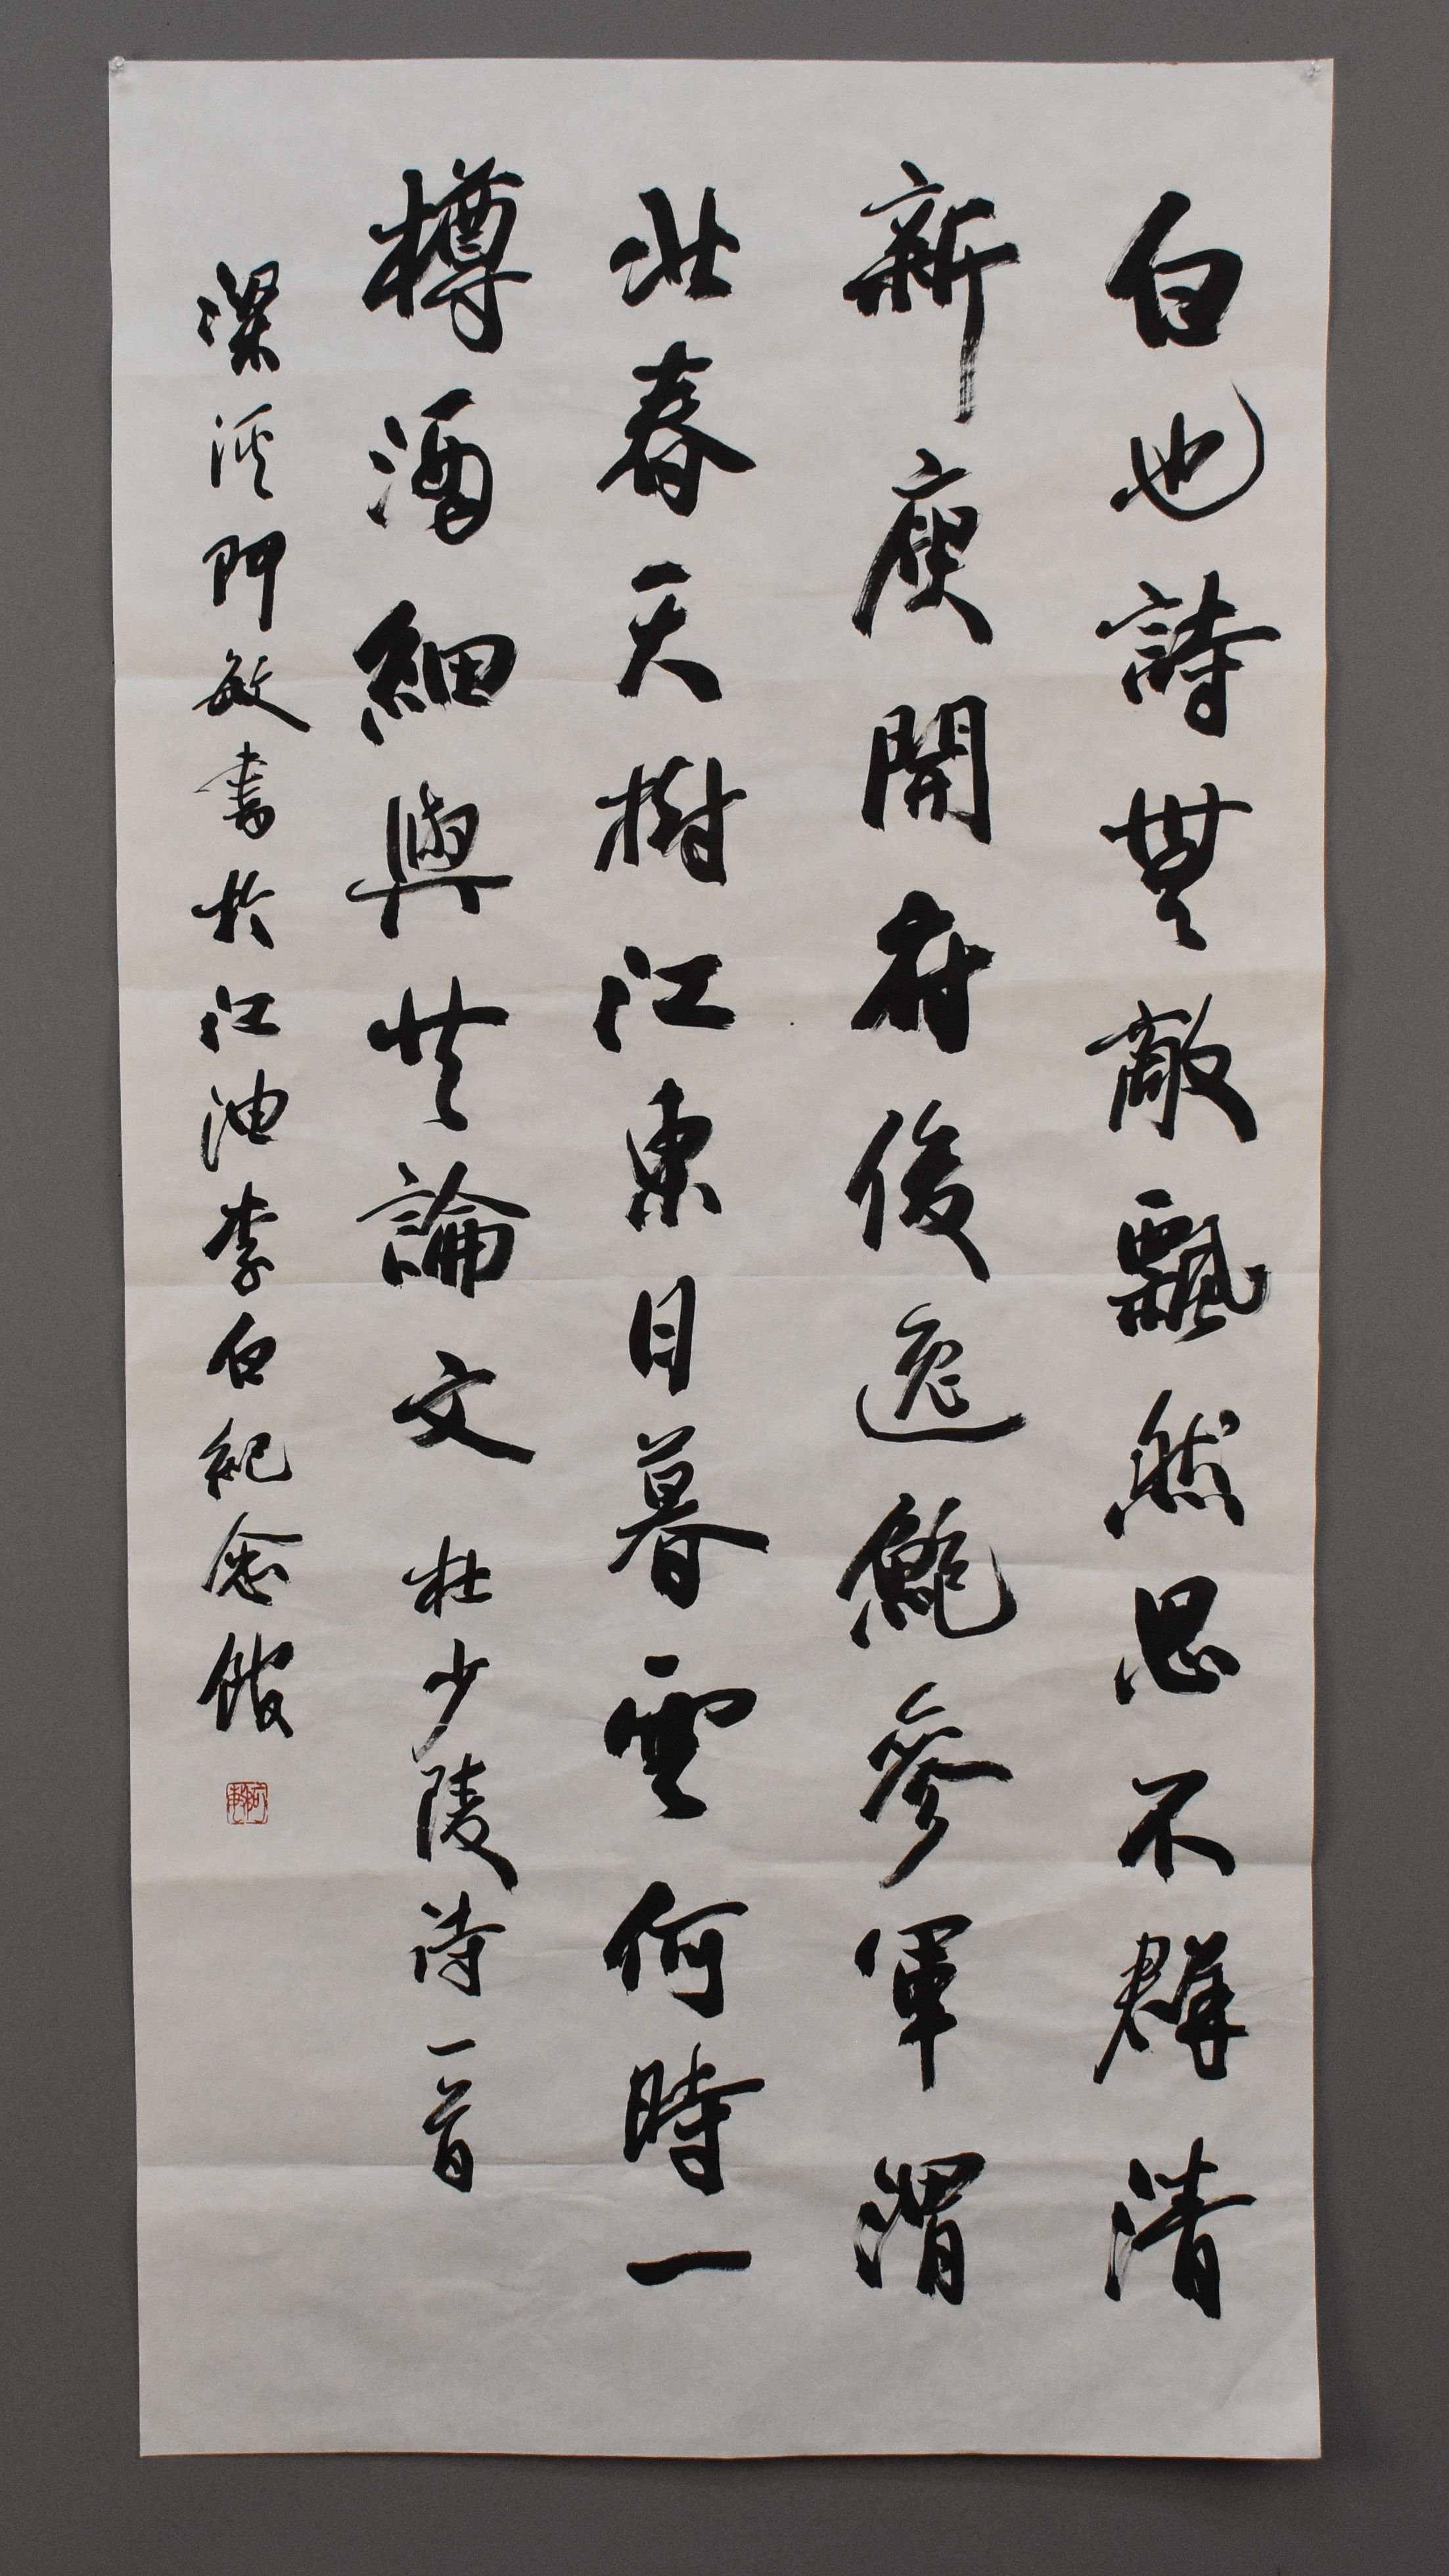 白也詩無敵飄然思不群清
新庾開府俊逸鮑參軍渭
北春天樹江東日暮雲何時一
樽酒細與共論文 杜少陵詩一首
梁溪阿敏書於江油李白紀念館